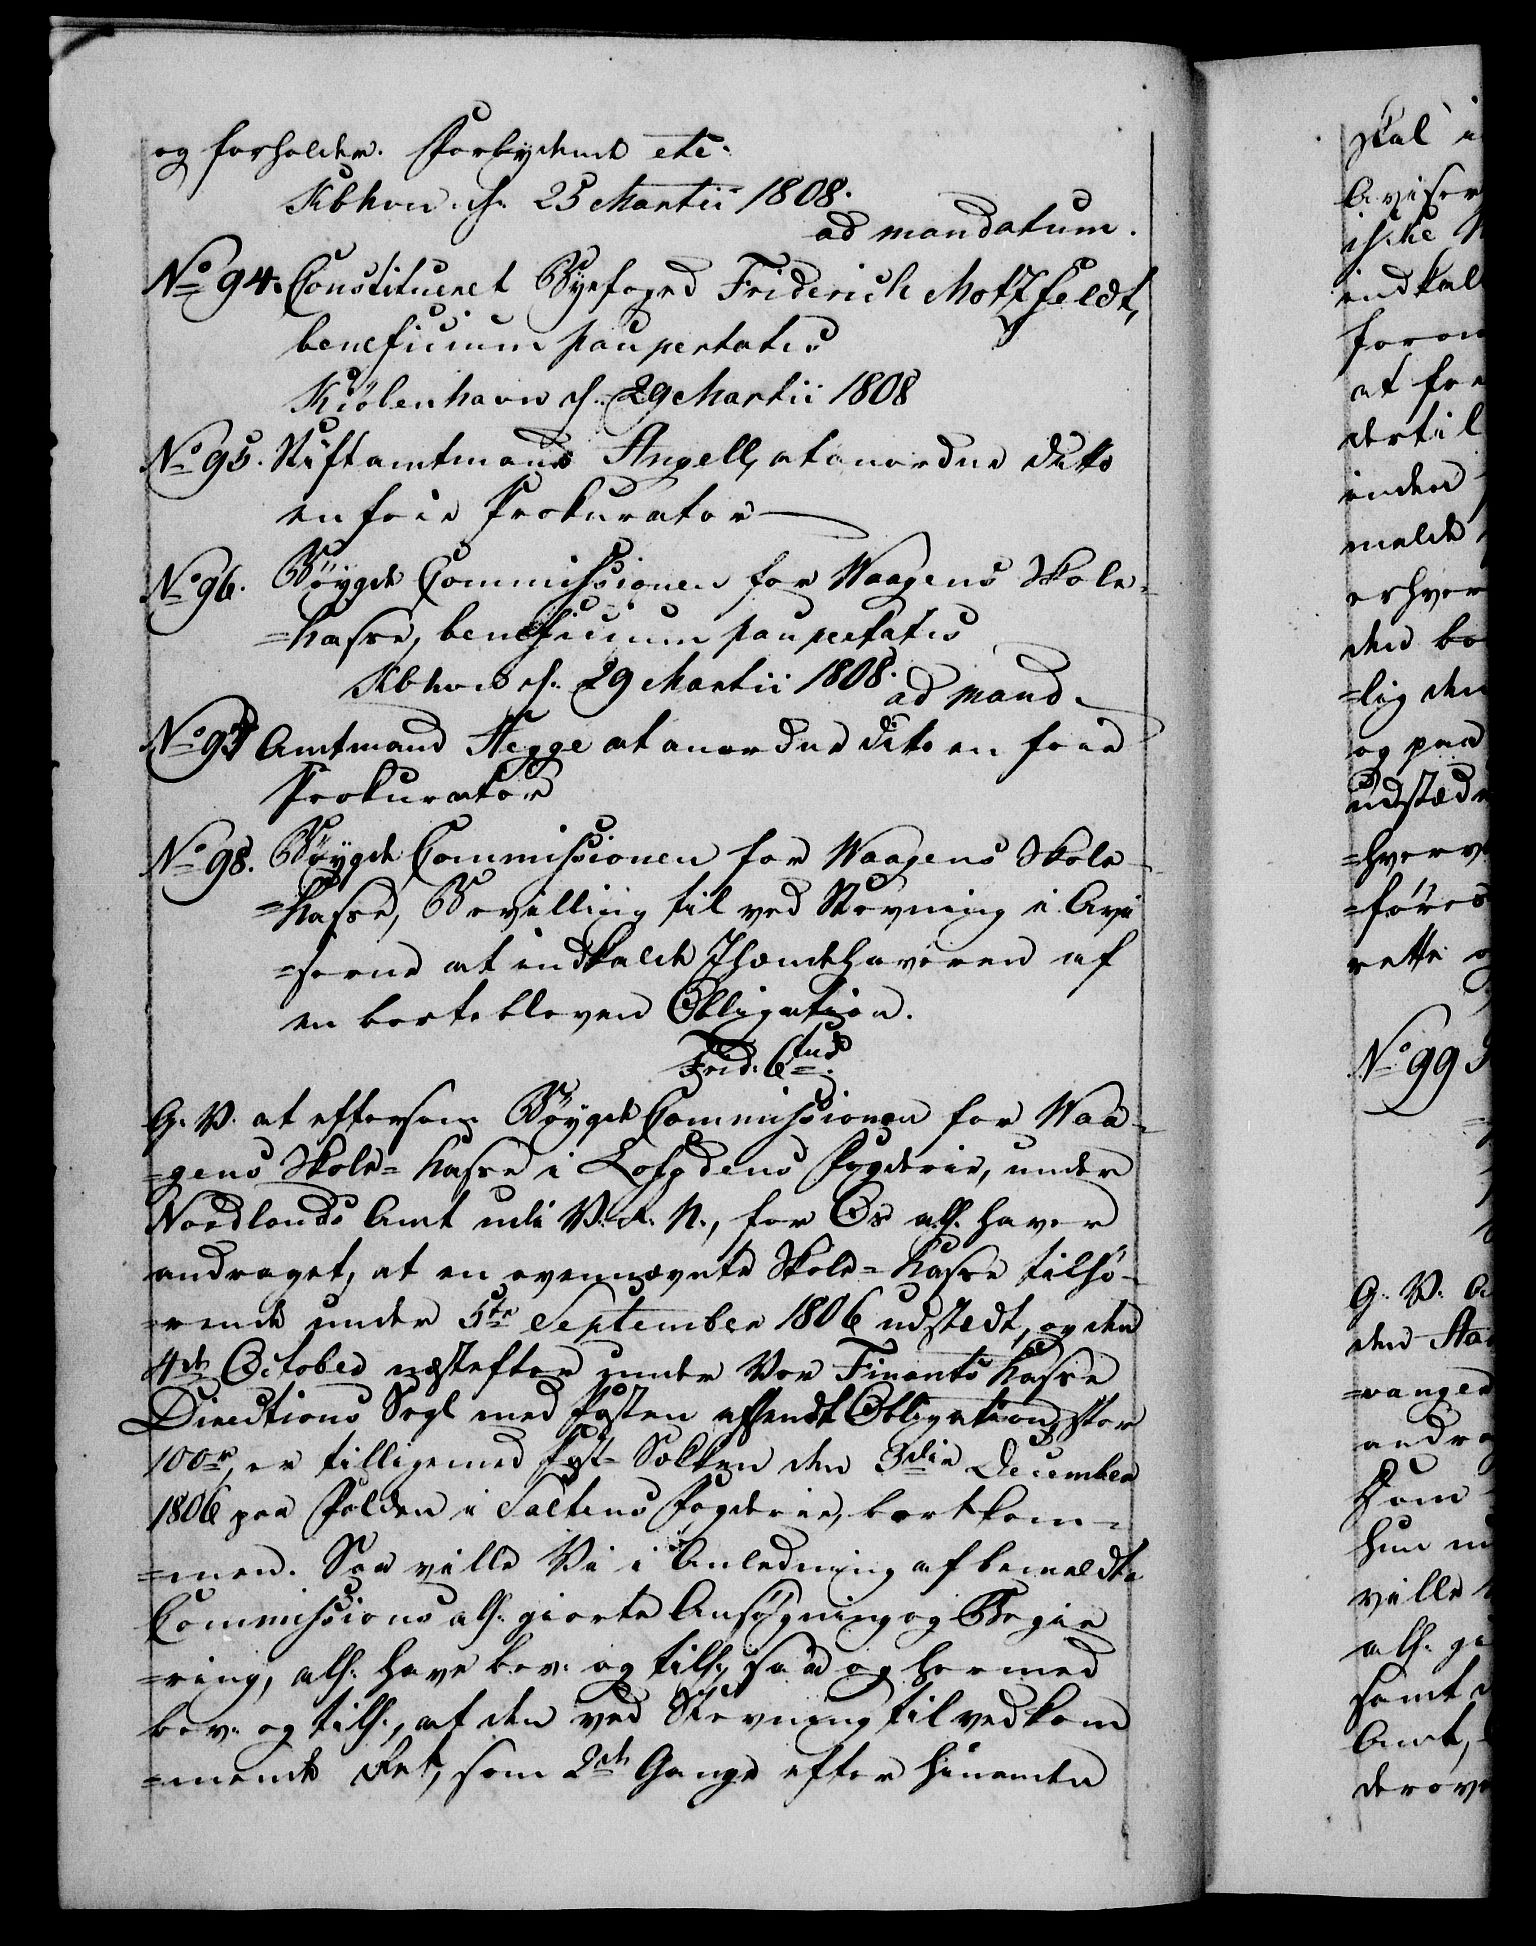 og forholder. Forbydende etc.
Kbhvn. d. 25 Martii 1808.
ad mandatum.
No 94. Constitueret Byefoged Friderich Motzfeldt,
beneficium paupertatis
Kiøbenhavn d. 29 Martii 1808
No 95. Stiftamtmand Angell, at anordne ditto
en frie Prokurator
No 96. Bøygde Commissionen for Waagens Skole-
=kasse, beneficium paupertatis
Kbhvn d. 29 Martii 1808.
ad mand.
No 97 Amtmand Hegge at anordne dito en frie
Prokurator
No 98. Bøygde Commissionen for Waagens Skole-
=Kasse, Bevilling til ved Stevning i Avi
=serne at indkalde Ihændehaveren af
en bortebleven Obligation.
Frid: 6tus.
G. V. at eftersom Bøygde Commissionen for Waa-
=gens Skole=Kasse i Lofodens Fogderie, under
Nordlands Amt udi V. R. N., for Os all. haver
andraget, at en ovennævnte Skole=Kasse tilhø-
=rende under 5te September 1806 udstedt, og den
4de October næstefter under Vor Finants Kasse
Directions Segl med Posten afsendt Obligation, stor
100 r, er tilligemed Post=Sækken den 3die December
1806 paa Folden i Saltens Fogderie, bortkom-
=men. Saa ville Vi i Anledning af bemeldte
Commissions all. giorte Ansøgning og Begie
=ring, all. have bev. og till., saa og hermed
bev. og till., at den ved Stevning til vedkom
=mende Ret, som 2de Gange efter hinanden
skal i
Aviser
indkal
foron
at fre
dertil
inden
melde
erhver
den bo
=lig den
og paa
udstæde
=hverv
=føres
rette o
No 99
G. V. A
den Sta
=vanger
andra
ham
hun
ville
all. gi
samt
Amt,
derove